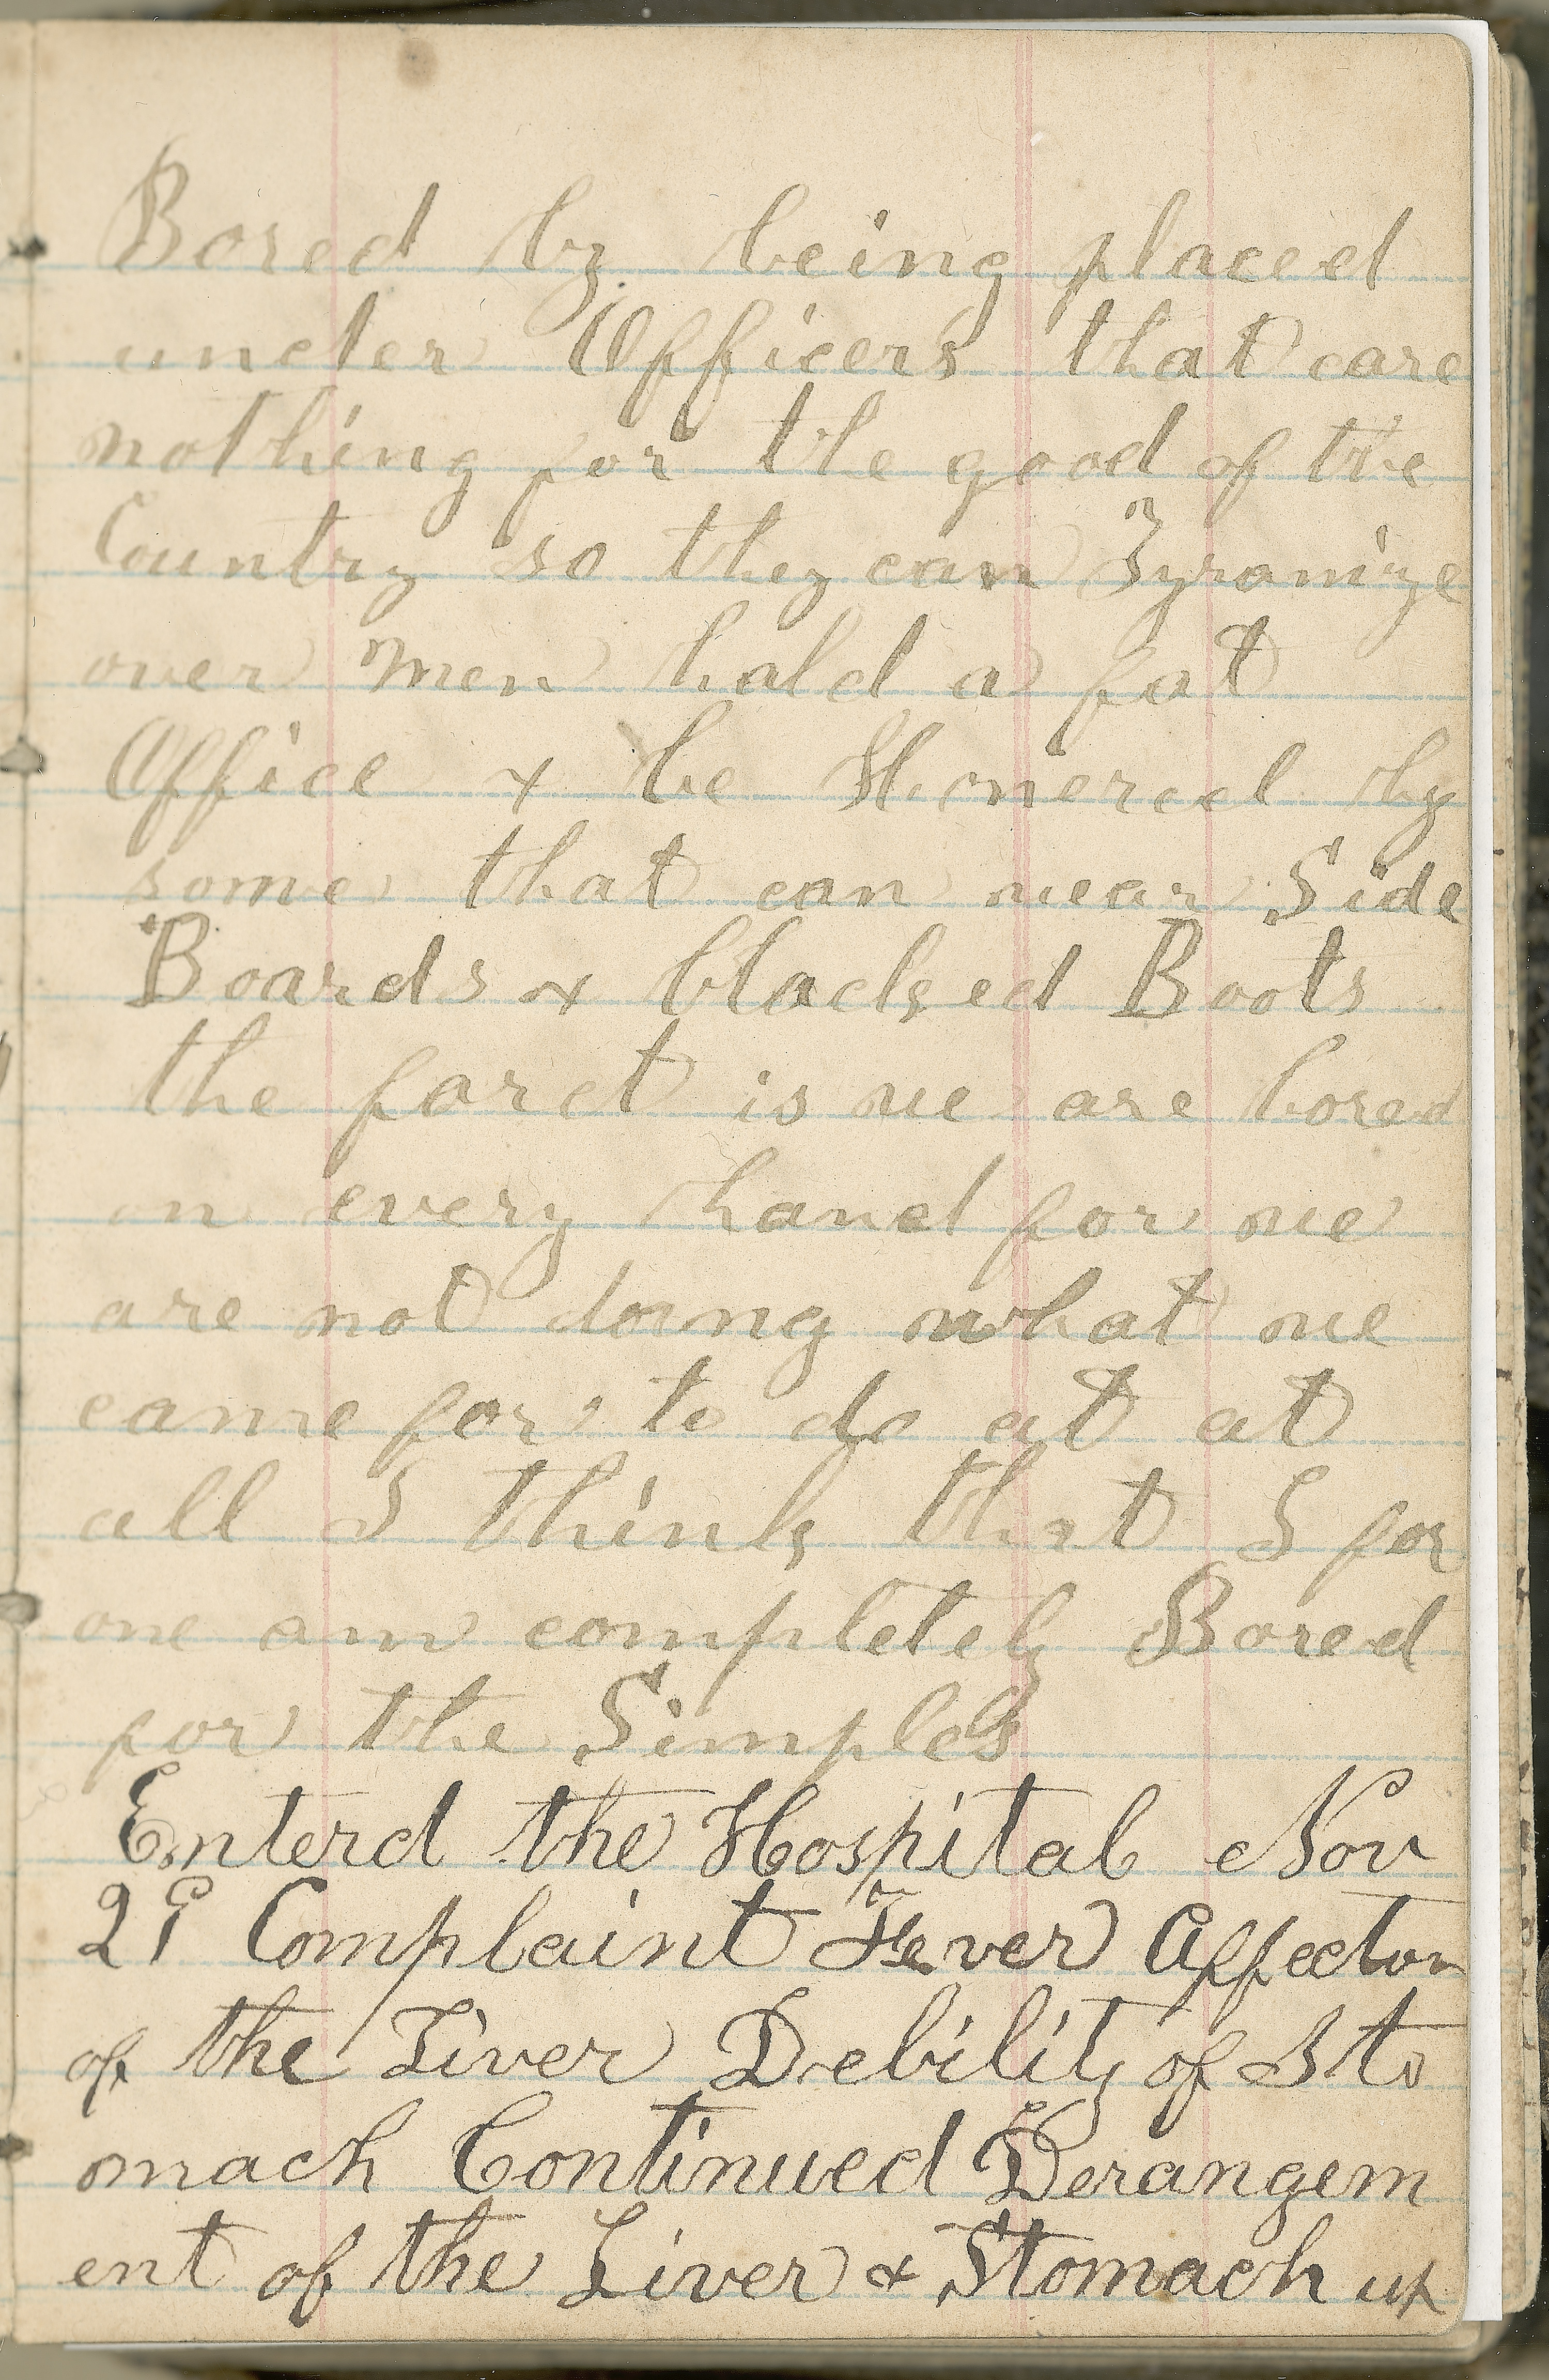 Bored by being placed
under Officers that care
nothing for the good of the
Country so they can Tyranize
over men hold a fat
Office & be Honered by
some that can wear Side
Boards & blacked Boots
the farct is we are bored
on every hand for we
are not doing what we
came for to do at at
all I think that I for
one am completely Bored
for the Simples
Enterd the Hospital Nov
29 Complaint Fever Affecton
of the Liver Debility of Sto
mach Continued Derangem
ent of the Liver & Stomach up